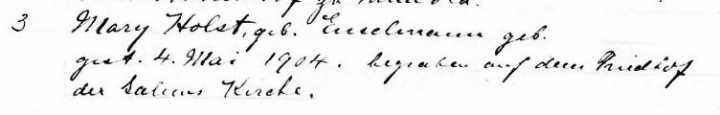 3 Mary Holst, geb. Enselmann geb.
gest. 4. Mai 1904. begraben auf dem Friedhof
der Salems Kirche.